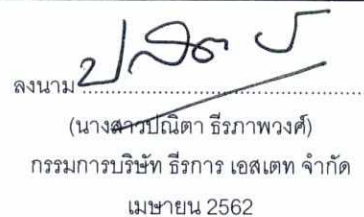 ลงนาม
(นางสาวปณิตา ธีรภาพวงศ์)
กรรมการบริษัท ธีรการ เอสเตท จำกัด
เมษายน 2562